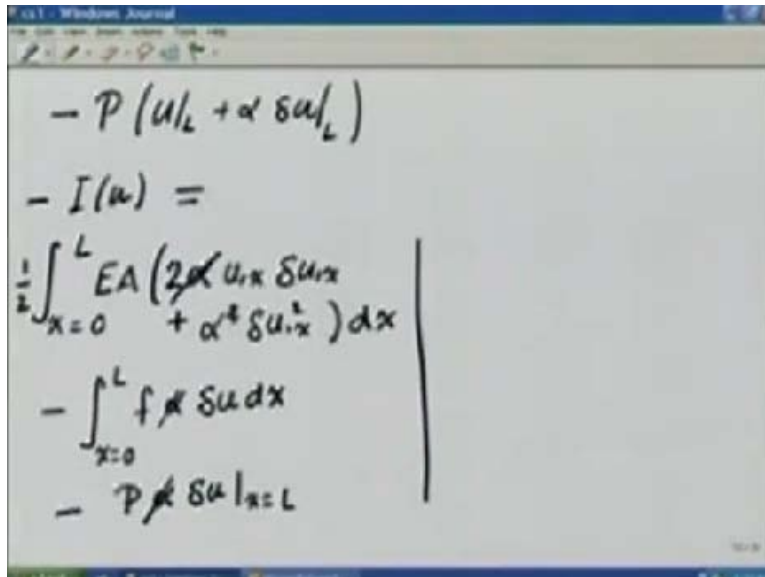 cs1 - Windows Journal
- P (u|_L + α δu|_L)
- I(u) =
½ ∫_{x=0}^{L} EA (2α u,x δu,x
+ α² δu,x² ) dx
- ∫_{x=0}^{L} f α δu dx
- P α δu|_{x=L}